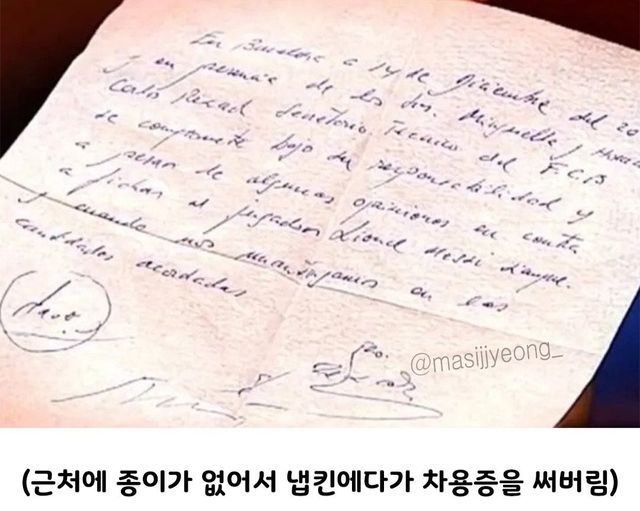 En Barcelona a 14 de Diciembre del 20
y en presencia de los Srs. Minguella y Hora
Carlo Rexach Secretorio Tecnico del F.C.B
se compromete bajo su responsabilidad y
a pesar de algunas opiniones en contra
a fichar al jugador Lionel Messi siempre
y cuando nos mantengamos en las
cantidades acordadas
@masijjyeong_
(근처에 종이가 없어서 냅킨에다가 차용증을 써버림)